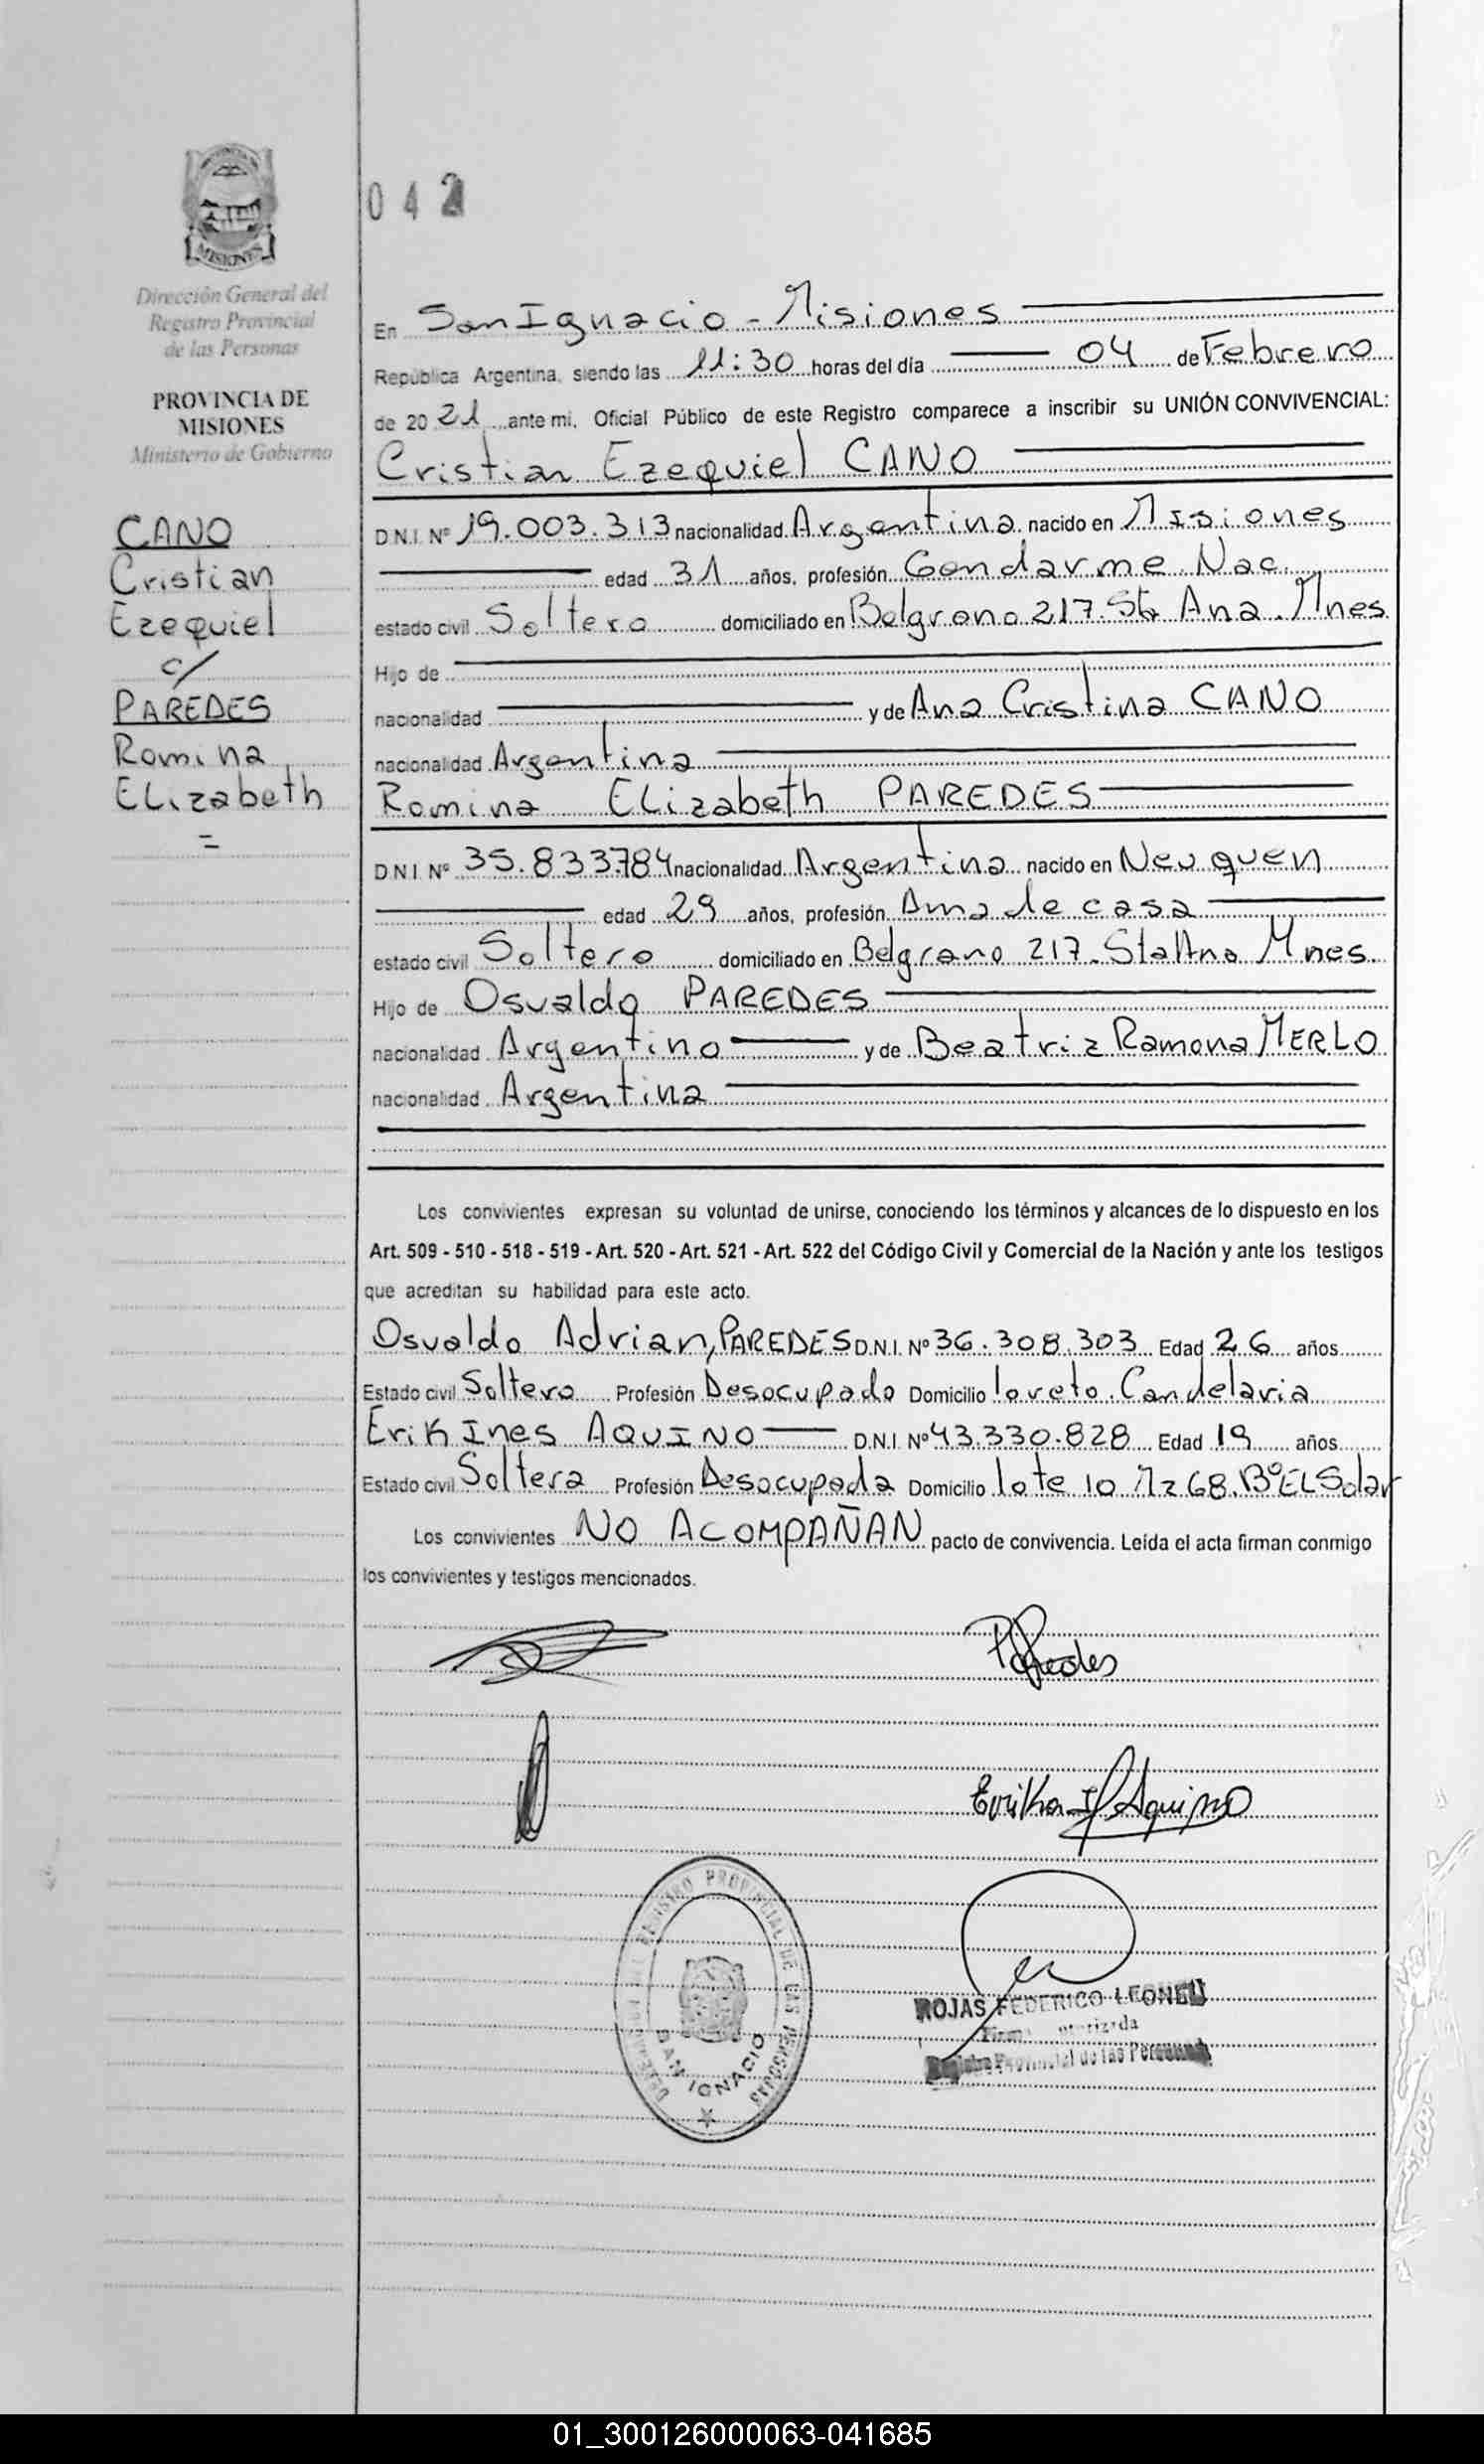 MISIONES
Dirección General del
Registro Provincial
de las Personas
PROVINCIA DE
MISIONES
Ministerio de Gobierno
CANO
Cristian
Ezequiel
c/
PAREDES
Romina
ELizabeth
=
042
En San Ignacio - Misiones
República Argentina, siendo las 11:30 horas del día 04 de Febrero
de 2021 ante mi, Oficial Público de este Registro comparece a inscribir su UNIÓN CONVIVENCIAL:
Cristian Ezequiel CANO
D.N.I. Nº 19.003.313 nacionalidad Argentina nacido en Misiones
edad 31 años, profesión Gendarme Nac.
estado civil Soltero domiciliado en Belgrano 217. Sta Ana. Mnes
Hijo de
nacionalidad y de Ana Cristina CANO
nacionalidad Argentina
Romina ELizabeth PAREDES
D.N.I. Nº 35.833.784 nacionalidad Argentina nacido en Neuquen
edad 29 años, profesión Ama de casa
estado civil Soltero domiciliado en Belgrano 217. Sta Ana Mnes.
Hijo de Osvaldo PAREDES
nacionalidad Argentino y de Beatriz Ramona MERLO
nacionalidad Argentina
Los convivientes expresan su voluntad de unirse, conociendo los términos y alcances de lo dispuesto en los
Art. 509 - 510 - 518 - 519 - Art. 520 - Art. 521 - Art. 522 del Código Civil y Comercial de la Nación y ante los testigos
que acreditan su habilidad para este acto.
Osvaldo Adrian, PAREDES D.N.I. Nº 36.308.303 Edad 26 años
Estado civil Soltero Profesión Desocupado Domicilio loreto. Candelaria
Erik Ines AQUINO D.N.I. Nº 43.330.828 Edad 19 años
Estado civil Soltera Profesión Desocupada Domicilio lote 10 Mz 68. Bº EL Solar
Los convivientes NO ACOMPAÑAN pacto de convivencia. Leída el acta firman conmigo
los convivientes y testigos mencionados.
Paredes
Erika I Aquino
REGISTRO PROVINCIAL DE LAS PERSONAS
SAN IGNACIO
ROJAS FEDERICO LEONEL
Registro Provincial de las Personas
01_300126000063-041685